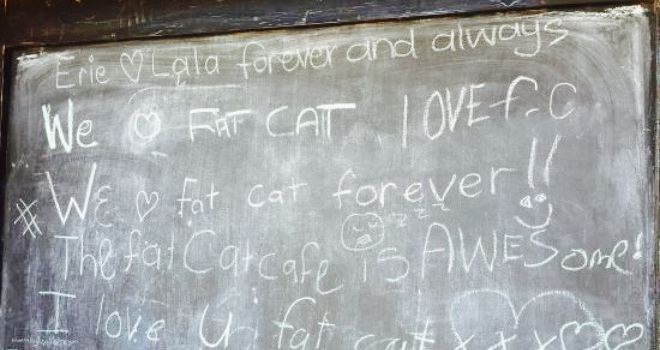 Erie ♡ Lala forever and always
We ♡ FAT CAT I LOVE f.C
# We ♡ fat cat forever!!
The fat Cat cafe is AWESome!
I love U fat cat x x x ♡♡